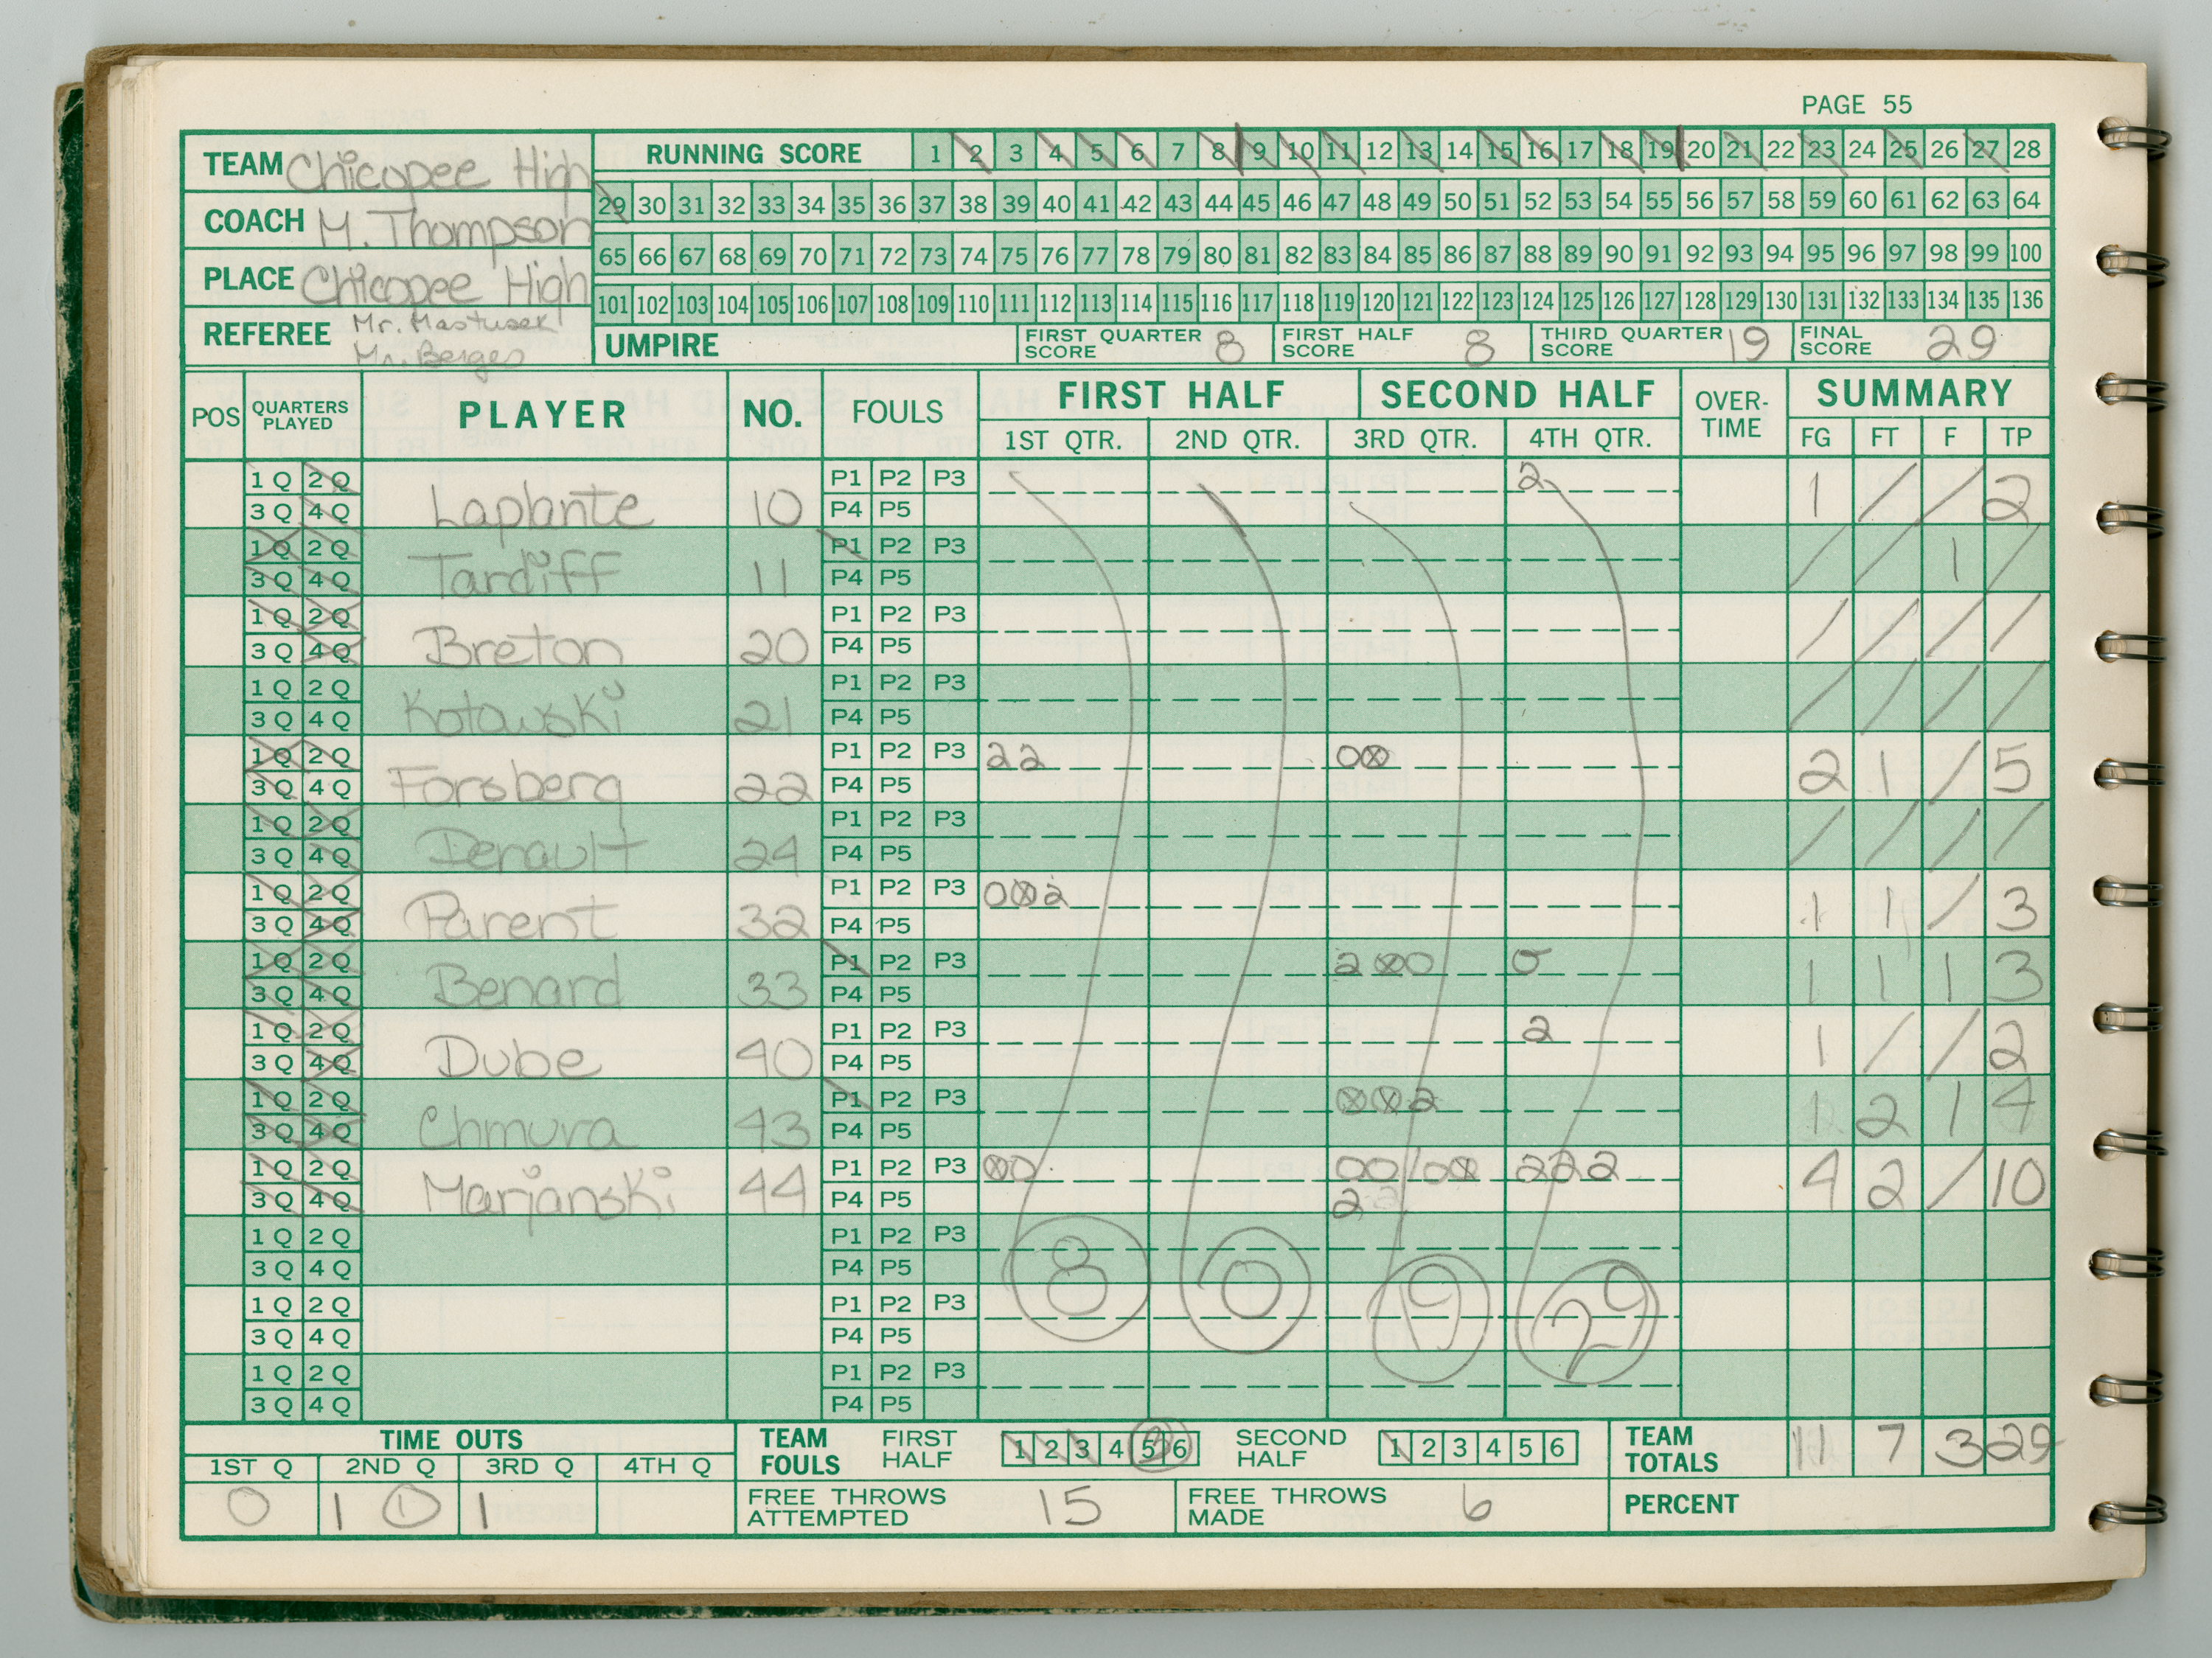 PAGE 55
TEAM Chicopee High
COACH M. Thompson
PLACE Chicopee High
REFEREE Mr. Mastusek
Mr. Berger
RUNNING SCORE 1 2 3 4 5 6 7 8 9 10 11 12 13 14 15 16 17 18 19 20 21 22 23 24 25 26 27 28
29 30 31 32 33 34 35 36 37 38 39 40 41 42 43 44 45 46 47 48 49 50 51 52 53 54 55 56 57 58 59 60 61 62 63 64
65 66 67 68 69 70 71 72 73 74 75 76 77 78 79 80 81 82 83 84 85 86 87 88 89 90 91 92 93 94 95 96 97 98 99 100
101 102 103 104 105 106 107 108 109 110 111 112 113 114 115 116 117 118 119 120 121 122 123 124 125 126 127 128 129 130 131 132 133 134 135 136
UMPIRE FIRST QUARTER SCORE 8 FIRST HALF SCORE 8 THIRD QUARTER SCORE 19 FINAL SCORE 29
POS QUARTERS PLAYED PLAYER NO. FOULS FIRST HALF SECOND HALF OVER-TIME SUMMARY
1ST QTR. 2ND QTR. 3RD QTR. 4TH QTR. FG FT F TP
1Q 2Q P1 P2 P3 2
3Q 4Q Laplante 10 P4 P5 1 / / 2
1Q 2Q P1 P2 P3
3Q 4Q Tardiff 11 P4 P5 / / 1 /
1Q 2Q P1 P2 P3
3Q 4Q Breton 20 P4 P5 / / / /
1Q 2Q P1 P2 P3
3Q 4Q Kotowski 21 P4 P5 / / / /
1Q 2Q P1 P2 P3 22 0⊗
3Q 4Q Forsberg 22 P4 P5 2 1 / 5
1Q 2Q P1 P2 P3
3Q 4Q Derault 24 P4 P5 / / / /
1Q 2Q P1 P2 P3 0⊗2
3Q 4Q Parent 32 P4 P5 1 1 / 3
1Q 2Q P1 P2 P3 2⊗0 0
3Q 4Q Benard 33 P4 P5 1 1 1 3
1Q 2Q P1 P2 P3 2
3Q 4Q Dube 40 P4 P5 1 / / 2
1Q 2Q P1 P2 P3 ⊗⊗2
3Q 4Q Chmura 43 P4 P5 1 2 1 4
1Q 2Q P1 P2 P3 ⊗0 00/0⊗ 222
3Q 4Q Marjanski 44 P4 P5 2 4 2 / 10
1Q 2Q P1 P2 P3
3Q 4Q P4 P5 8 0 19 29
1Q 2Q P1 P2 P3
3Q 4Q P4 P5
1Q 2Q P1 P2 P3
3Q 4Q P4 P5
TIME OUTS
1ST Q 2ND Q 3RD Q 4TH Q
0 1 1 1
TEAM FOULS FIRST HALF 1 2 3 4 5 6 SECOND HALF 1 2 3 4 5 6
FREE THROWS ATTEMPTED 15 FREE THROWS MADE 6
TEAM TOTALS 11 7 3 29
PERCENT